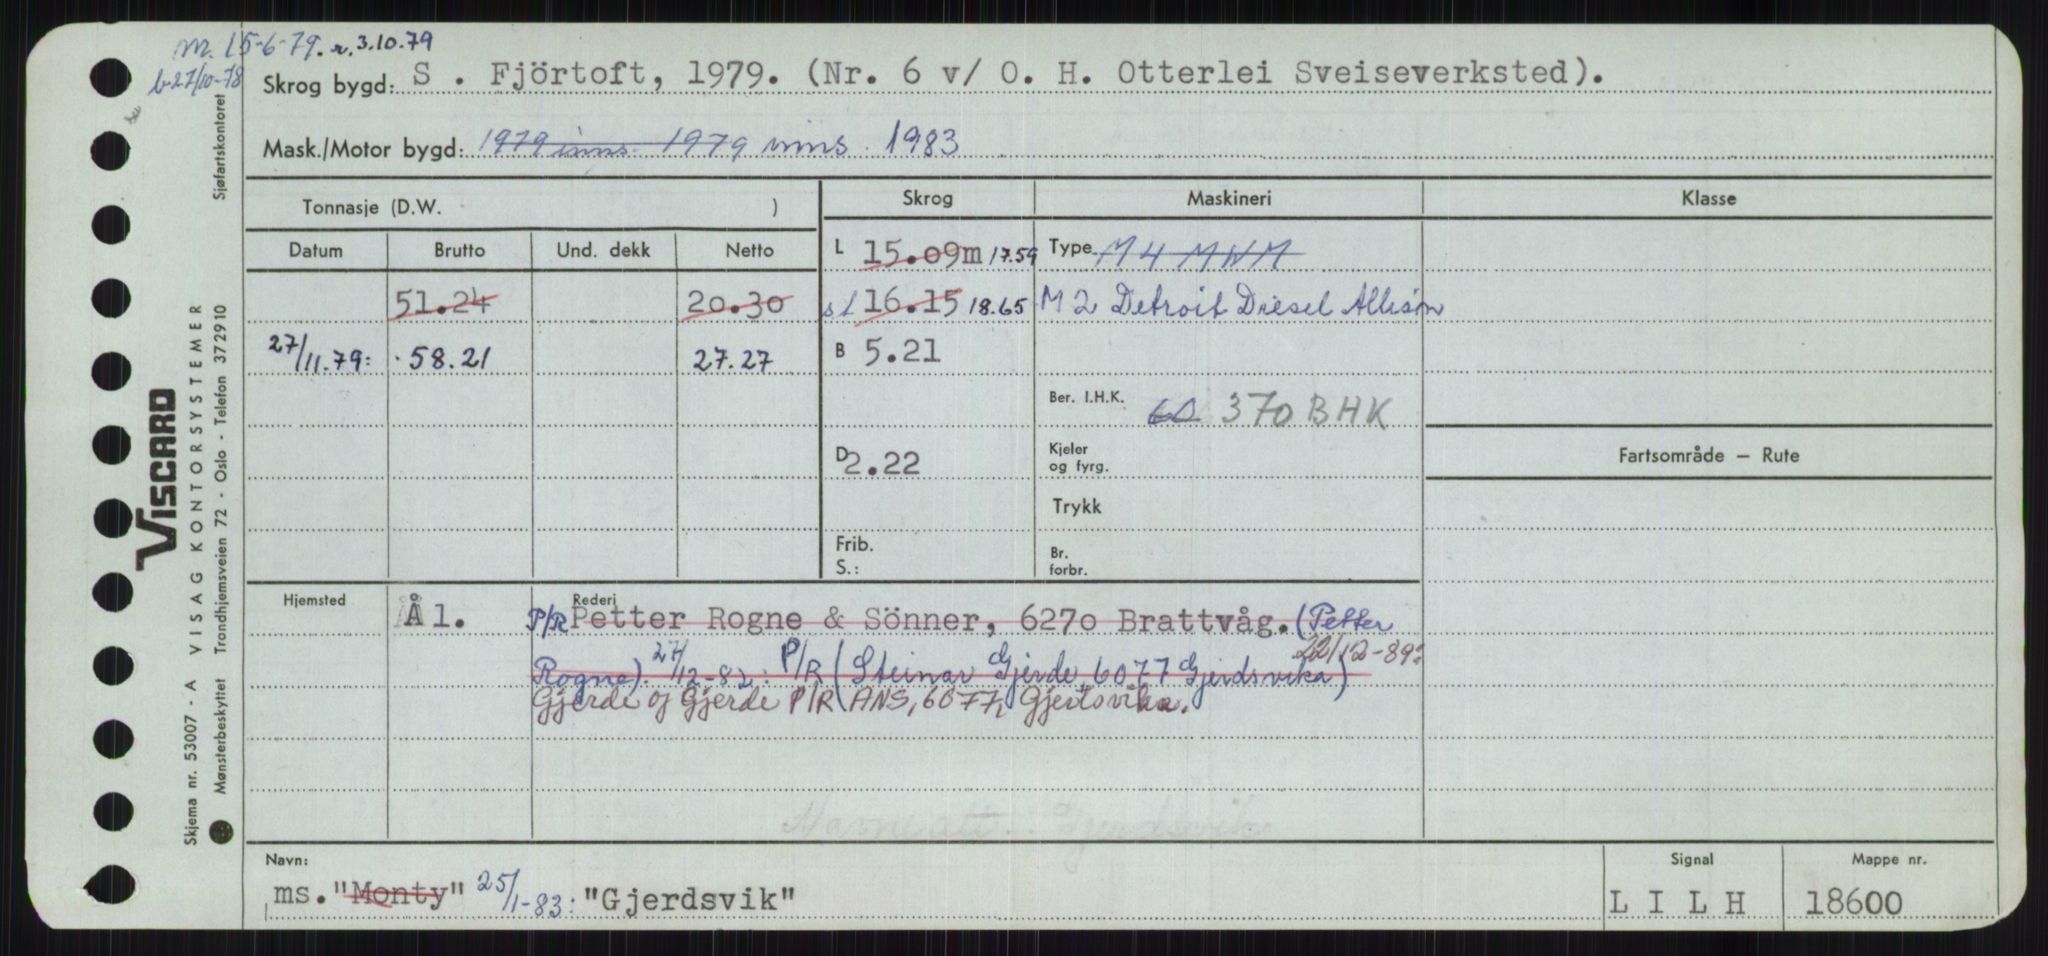 m. 15-6-79. r. 3.10.79
b-27/10-78
Skrog bygd: S . Fjörtoft, 1979. (Nr. 6 v/ O. H. Otterlei Sveiseverksted).
Mask./Motor bygd: 1979 inns. 1979 inns. 1983
Tonnasje (D.W. )
Skrog
Maskineri
Klasse
Datum
Brutto
Und. dekk
Netto
L 15.09m 17.59
Type M 4 MWM
51.24
20.30
sl 16.15 18.65
M 2 Detroit Diesel Allison
27/11.79: 58.21
27.27
B 5.21
Ber. I.H.K. 60 370 BHK
D 2.22
Kjeler
og fyrg.
Fartsområde – Rute
Trykk
Frib.
S.:
Br.
forbr.
Hjemsted
Ål.
Rederi
P/R Petter Rogne & Sönner, 6270 Brattvåg. (Petter
Rogne). 27/12-82: P/R (Steinar Gjerde, 6077 Gjerdsvika) 22/12-89:
Gjerde og Gjerde P/R ANS, 6077, Gjerdsvika.
Gjerdsvik
Navn:
ms. "Monty" 25/1-83: "Gjerdsvik"
Signal
L I L H
Mappe nr.
18600
VISCARD
Skjema nr. 53007 - A VISAG KONTORSYSTEMER
Mønsterbeskyttet Trondhjemsveien 72 - Oslo - Telefon 372910 Sjøfartskontoret